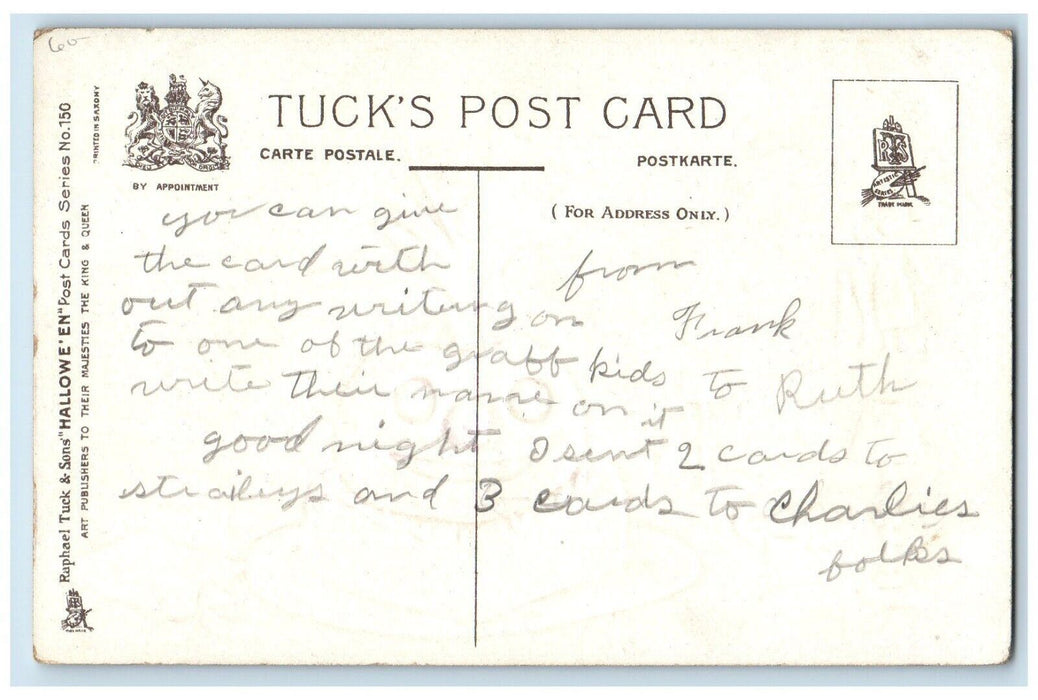 60-
TUCK'S POST CARD
CARTE POSTALE.
POSTKARTE.
BY APPOINTMENT
( FOR ADDRESS ONLY. )
RTS
ARTISTIC SERIES
TRADE MARK
Raphael Tuck & Sons' "HALLOWE'EN" Post Cards Series No. 150
ART PUBLISHERS TO THEIR MAJESTIES THE KING & QUEEN
PRINTED IN SAXONY
you can give
the card with
out any writing on
to one of the graff kids
write their name on it
good night I sent 2 cards to
straileys and 3 cards to Charlies
folks
from
Frank
to Ruth